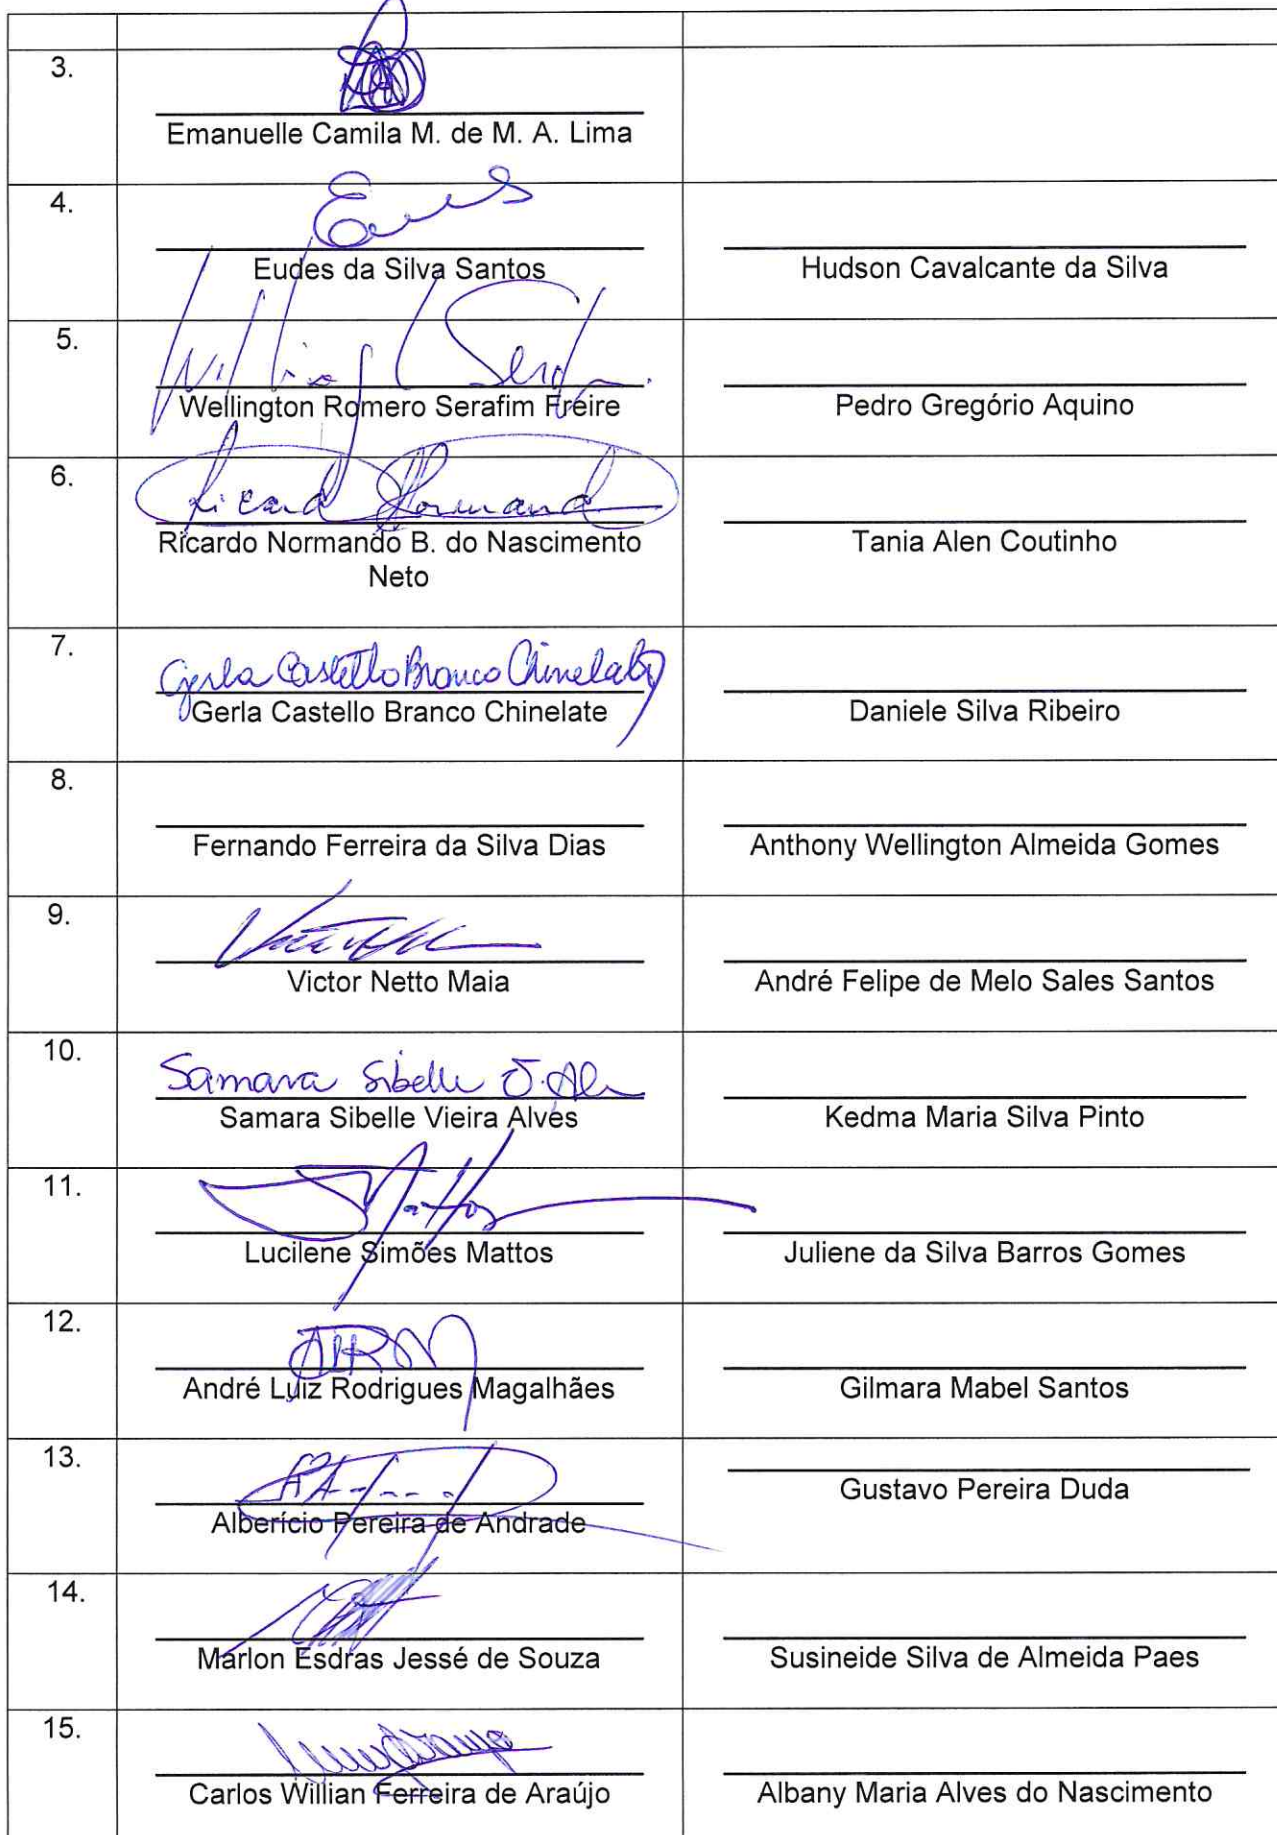 3.
Emanuelle Camila M. de M. A. Lima
4.
Eudes
Eudes da Silva Santos
Hudson Cavalcante da Silva
5.
Wellington Romero Serafim Freire
Pedro Gregório Aquino
6.
Ricardo Normando
Ricardo Normando B. do Nascimento
Neto
Tania Alen Coutinho
7.
Gerla Castello Branco Chinelate
Gerla Castello Branco Chinelate
Daniele Silva Ribeiro
8.
Fernando Ferreira da Silva Dias
Anthony Wellington Almeida Gomes
9.
Victor Netto Maia
André Felipe de Melo Sales Santos
10.
Samara Sibelle V. Alves
Samara Sibelle Vieira Alves
Kedma Maria Silva Pinto
11.
Mattos
Lucilene Simões Mattos
Juliene da Silva Barros Gomes
12.
ALRM
André Luiz Rodrigues Magalhães
Gilmara Mabel Santos
13.
Alberício Pereira de Andrade
Gustavo Pereira Duda
14.
Marlon Esdras Jessé de Souza
Susineide Silva de Almeida Paes
15.
Carlos Willian Ferreira de Araújo
Albany Maria Alves do Nascimento